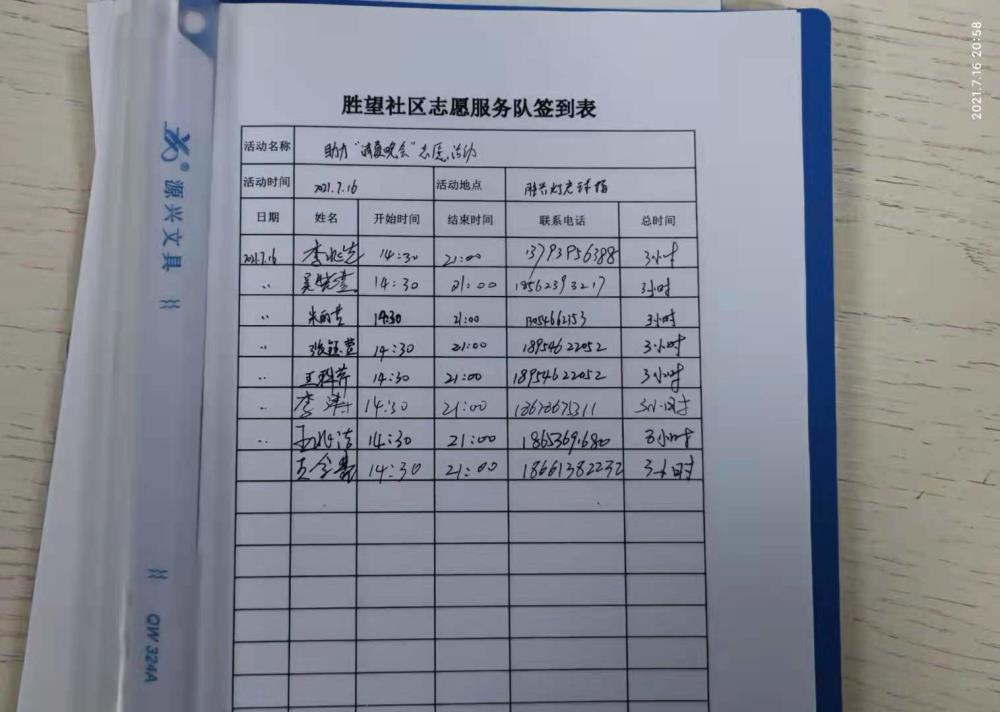 2021.7.16 20:58
源兴文具
QW 324A
胜望社区志愿服务队签到表
活动名称 助力“消夏晚会”志愿活动
活动时间 2021.7.16 活动地点
日期 姓名 开始时间 结束时间 联系电话 总时间
2021.7.16 14:30 21:00 13793956388 3小时
〃 14:30 21:00 18562393217 3小时
〃 14:30 21:00 3小时
〃 张钰莹 14:30 21:00 18954622052 3小时
〃 王科芹 14:30 21:00 18954622052 3小时
〃 李 14:30 21:00 3小时
〃 14:30 21:00 3小时
14:30 21:00 18661382232 3小时